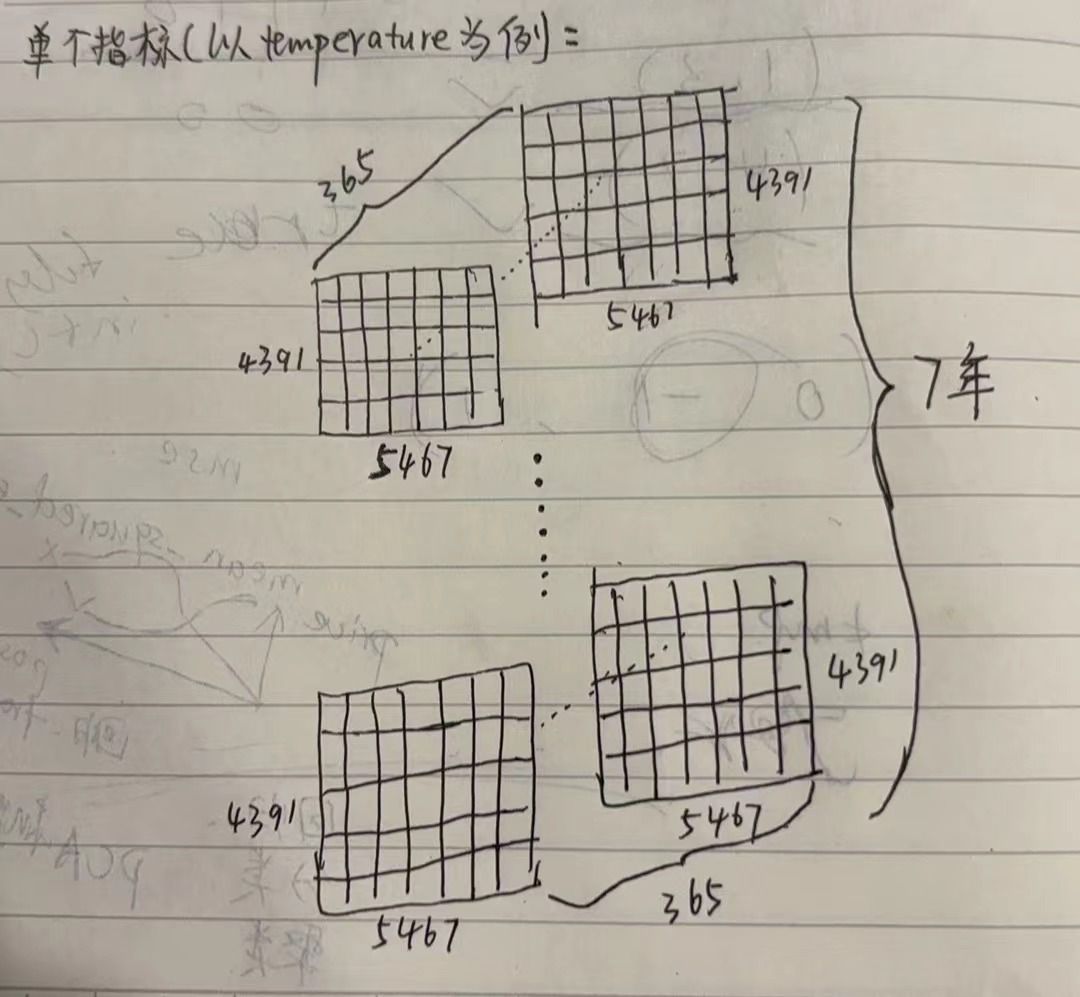 单个指标(以temperature为例)=
365
4391
5467
4391
5467
7年
4391
5467
4391
5467
365